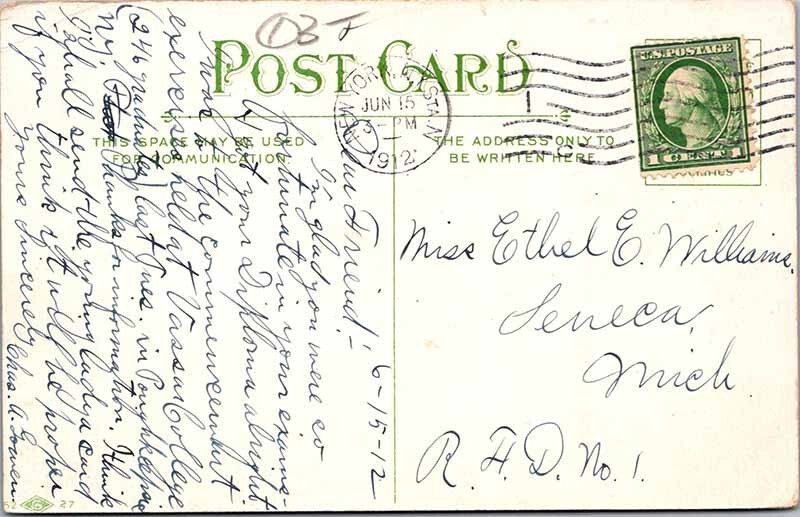 03
POST CARD
THIS SPACE MAY BE USED
FOR COMMUNICATION.
THE ADDRESS ONLY TO
BE WRITTEN HERE
NEW YORK, N.Y. STA. N
JUN 15
3 - PM
1912
U.S. POSTAGE
1 CENT 1
6-15-12
Dear Friend:-
I'm glad you were so
fortunate in your exams-
Got your Diploma alright
Along the commencement
exercises held at Vassar College
(246 graduates) last Tues. in Poughkeepsie
N.Y. thanks for information. I think
I shall send the young lady a card
if you think it will be proper
yours sincerely Chas. A. Gowen
Miss Ethel E. Williams.
Seneca,
Mich
R.F.D. No. 1.
52 27